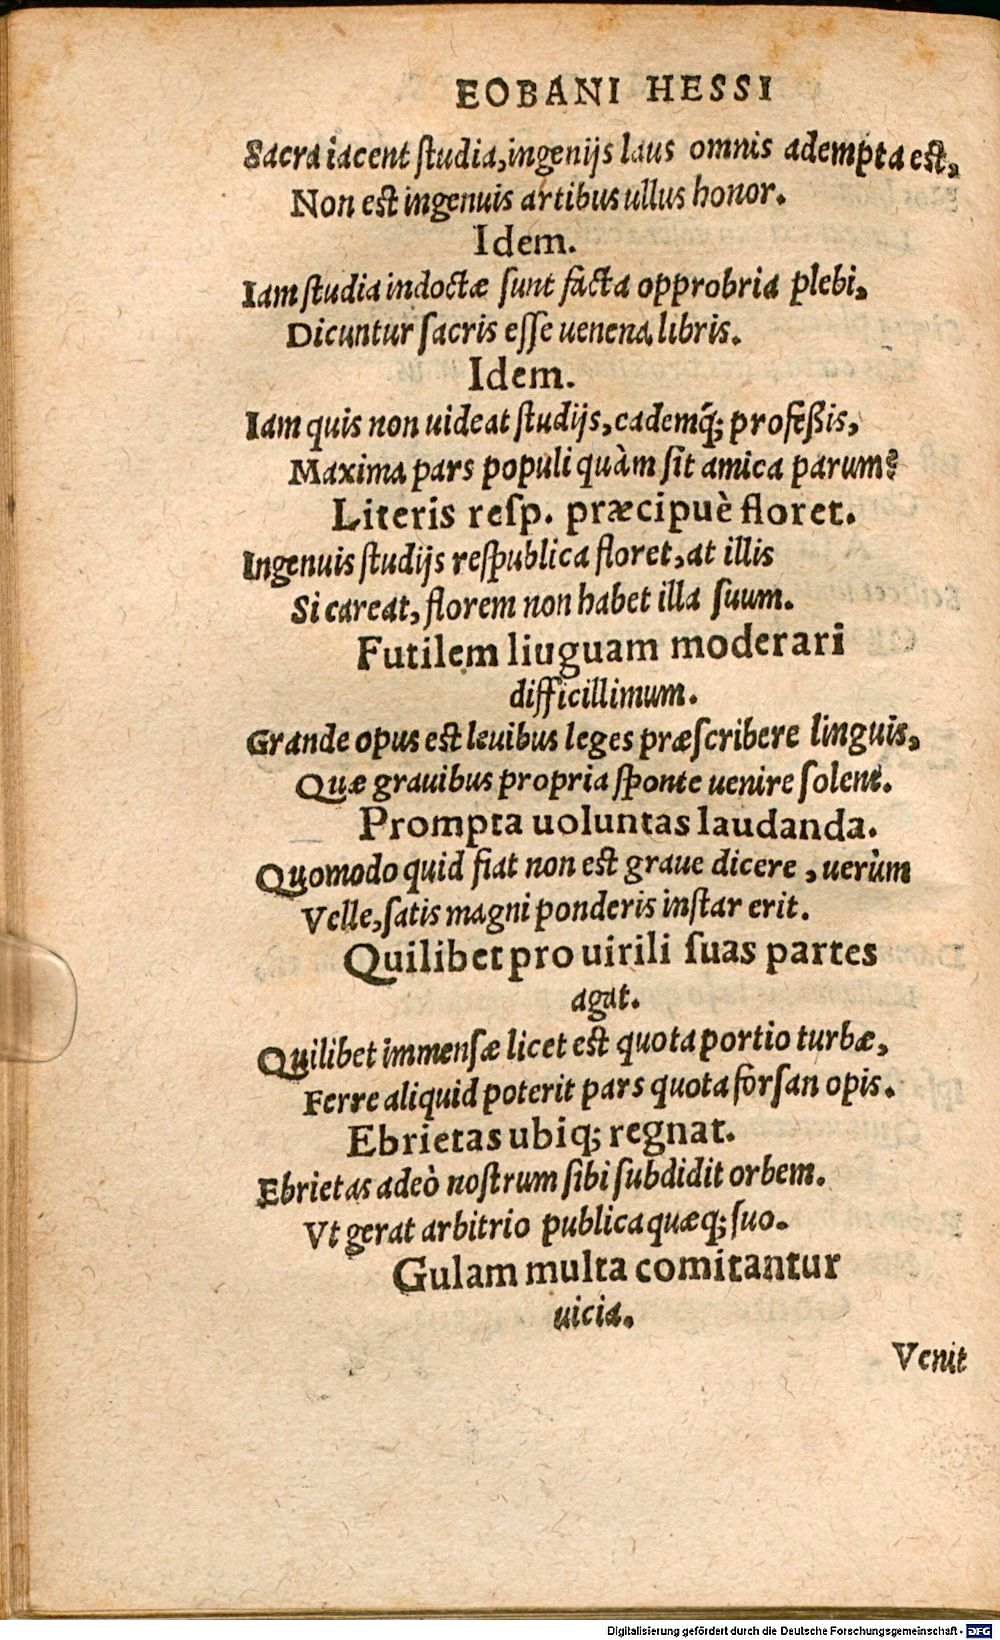 EOBANI HESSI
Sacra iacent ſtudia, ingenijs laus omnis adempta est,
Non est ingenuis artibus ullus honor.
Idem.
Iam ſtudia indoctæ ſunt facta opprobria plebi,
Dicuntur ſacris eſſe uenena libris.
Idem.
Iam quis non uideat ſtudijs, eademq́; profeßis,
Maxima pars populi quàm ſit amica parum?
Literis reſp. præcipuè floret.
Ingenuis ſtudijs reſpublica floret, at illis
Si careat, florem non habet illa ſuum.
Futilem liuguam moderari
difficillimum.
Grande opus est leuibus leges præſcribere linguis,
Quæ grauibus propria ſponte uenire ſolent.
Prompta uoluntas laudanda.
Quomodo quid fiat non est graue dicere, uerùm
Velle, ſatis magni ponderis inſtar erit.
Quilibet pro uirili ſuas partes
agat.
Quilibet immenſæ licet est quota portio turbæ,
Ferre aliquid poterit pars quota forſan opis.
Ebrietas ubiq; regnat.
Ebrietas adeò noſtrum ſibi ſubdidit orbem.
Vt gerat arbitrio publica quæq; ſuo.
Gulam multa comitantur
uicia.
Venit
Digitalisierung gefördert durch die Deutsche Forschungsgemeinschaft - DFG